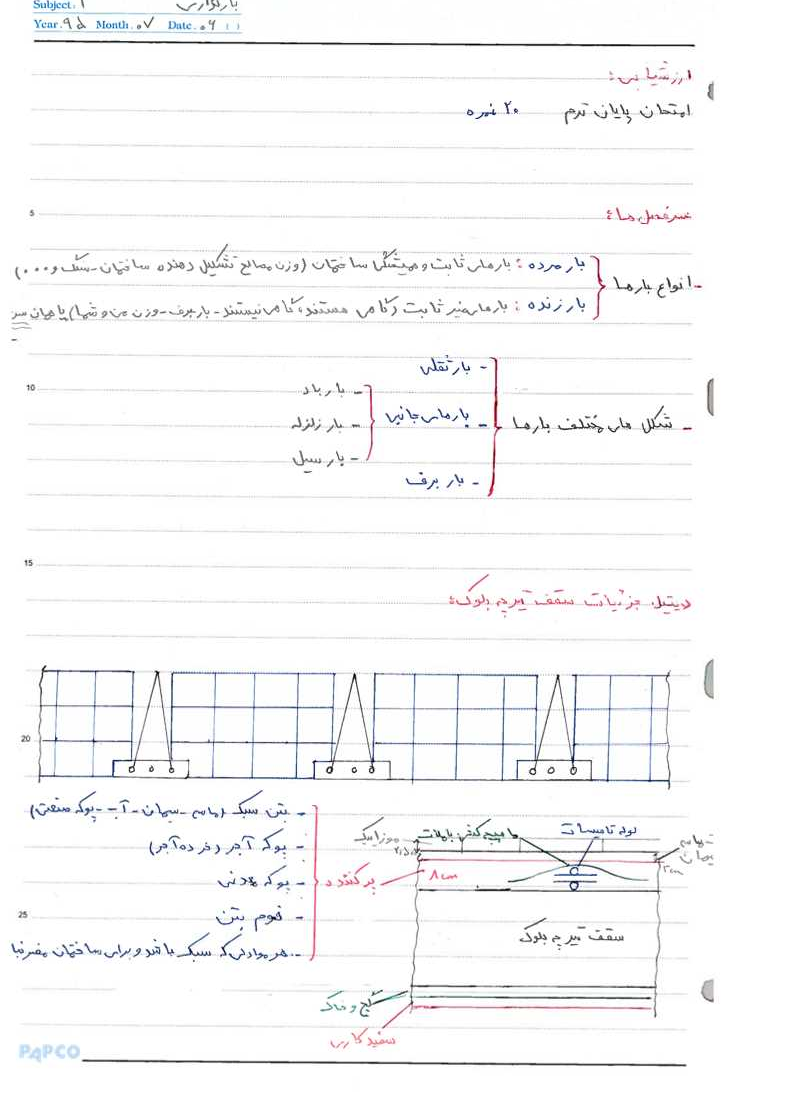 Subject: ۱ بارگذاری
Year. ۹۵ Month. ۰۷ Date. ۰۴ ( )
ارزشیابی:
امتحان پایان ترم ۲۰ نمره
5
سرفصل ها:
-انواع بارها
بار مرده: بارهای ثابت و همیشگی ساختمان (وزن مصالح تشکیل دهنده ساختمان-سنگ و ...)
بار زنده: بارهای غیر ثابت (گاهی هستند، گاهی نیستند-بار برف-وزن من و شما) یا همان سر
10
- شکل های مختلف بارها
- بار ثقلی
- بارهای جانبی
- بار باد
- بار زلزله
- بار سیل
- بار برف
15
دیتیل جزئیات سقف تیرچه بلوک:
20
- بتن سبک (ماسه-سیمان-آب-پوکه صنعتی)
- پوکه آجر (خرده آجر)
- پوکه معدنی
- فوم بتن
- هر موادی که سبک باشد و برای ساختمان مضر نبا
پرکننده
8 cm
موزاییک
ملات
لوله تاسیسات
ماسه
سیمان
2 cm
25
سقف تیرچه بلوک
گچ و خاک
سفیدکاری
PAPCO